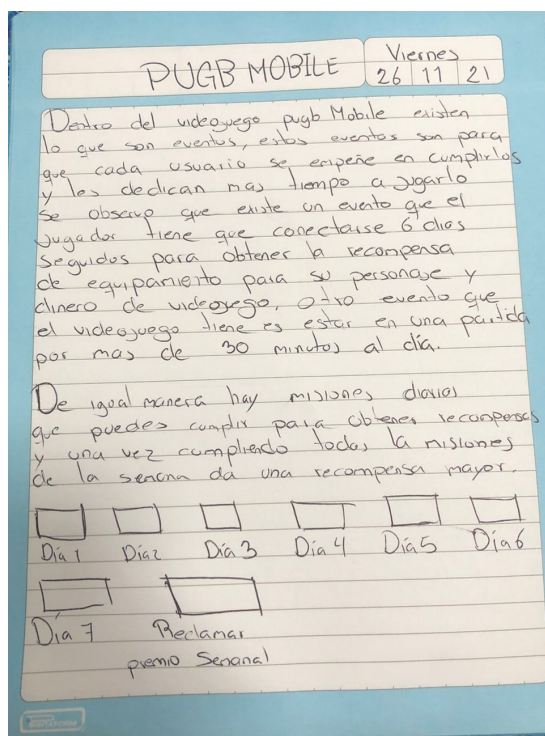 PUGB MOBILE
Viernes
26 | 11 | 21
Dentro del videojuego pugb Mobile existen
lo que son eventos, estos eventos son para
que cada usuario se empeñe en cumplirlos
y les dedican mas tiempo a jugarlo
se observo que existe un evento que el
jugador tiene que conectarse 6 dias
seguidos para obtener la recompensa
de equipamiento para su personaje y
dinero de videojuego, otro evento que
el videojuego tiene es estar en una partida
por mas de 30 minutos al día.
De igual manera hay misiones diarias
que puedes cumplir para obtener recompensas
y una vez cumpliendo todas la misiones
de la semana da una recompensa mayor.
Día 1 Día 2 Día 3 Día 4 Día 5 Día 6
Día 7 Reclamar
premio Semanal